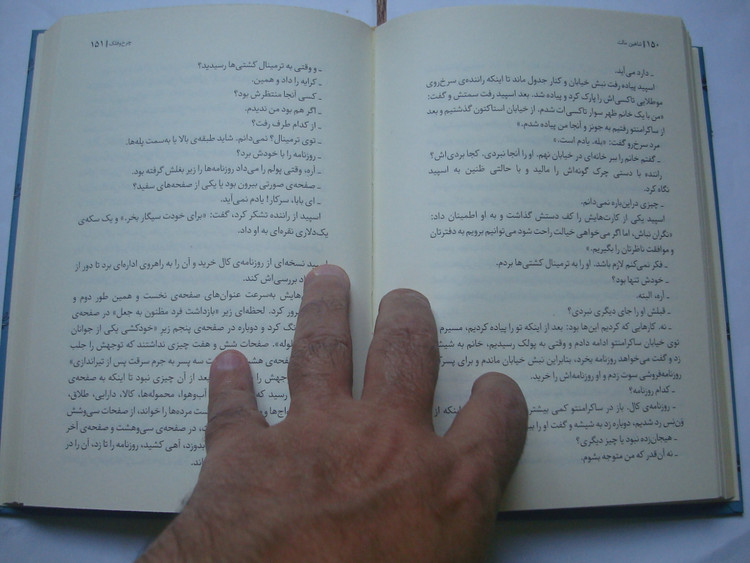 ۱۵۰ | شاهین مالت
ـ دارد می‌آید.
اسپید پیاده رفت نبش خیابان و کنار جدول ماند تا اینکه راننده‌ی سرخ‌روی
موطلایی تاکسی‌اش را پارک کرد و پیاده شد. بعد اسپید رفت سمتش و گفت:
«من با یک خانم ظهر سوار تاکسی‌ات شدم. از خیابان استاکتون گذشتیم و بعد
از ساکرامنتو رفتیم به جونز و آنجا من پیاده شدم.»
مرد سرخ‌رو گفت: «بله. یادم است.»
ـ گفتم خانم را ببر خانه‌ای در خیابان نهم. او را آنجا نبردی. کجا بردی‌اش؟
راننده با دستی چرک گونه‌اش را مالید و با حالتی ظنین به اسپید
نگاه کرد.
ـ چیزی دراین‌باره نمی‌دانم.
اسپید یکی از کارت‌هایش را کف دستش گذاشت و به او اطمینان داد:
«نگران نباش، اما اگر می‌خواهی خیالت راحت شود می‌توانیم برویم به دفترتان
و موافقت ناظرتان را بگیریم.»
ـ فکر نمی‌کنم لازم باشد. او را به ترمینال کشتی‌ها بردم.
ـ خودش تنها بود؟
ـ آره، البته.
ـ قبلش او را جای دیگری نبردی؟
ـ نه. کارهایی که کردیم این‌ها بود: بعد از اینکه تو را پیاده کردیم، مسیرم
توی خیابان ساکرامنتو ادامه دادم و وقتی به پولک رسیدیم، خانم به شیشه
زد و گفت می‌خواهد روزنامه بخرد، بنابراین نبش خیابان ماندم و برای پسرک
روزنامه‌فروشی سوت زدم و او روزنامه‌اش را خرید.
ـ کدام روزنامه؟
ـ روزنامه‌ی کال. باز در ساکرامنتو کمی بیشتر اینکه از
وَن‌نِس رد شدیم، دوباره زد به شیشه و گفت او را ببر
ـ هیجان‌زده نبود یا چیز دیگری؟
ـ نه آن‌قدر که من متوجه بشوم.
چرخ‌وفلک | ۱۵۱
ـ و وقتی به ترمینال کشتی‌ها رسیدید؟
ـ کرایه را داد و همین.
ـ کسی آنجا منتظرش بود؟
ـ اگر هم بود من ندیدم.
ـ از کدام طرف رفت؟
ـ توی ترمینال؟ نمی‌دانم. شاید طبقه‌ی بالا یا به‌سمت پله‌ها.
ـ روزنامه را با خودش برد؟
ـ آره، وقتی پولم را می‌داد روزنامه‌ها را زیر بغلش گرفته بود.
ـ صفحه‌ی صورتی بیرون بود یا یکی از صفحه‌های سفید؟
ـ ای بابا، سرکار! یادم نمی‌آید.
اسپید از راننده تشکر کرد، گفت: «برای خودت سیگار بخر.» و یک سکه‌ی
یک‌دلاری نقره‌ای به او داد.
اسپید نسخه‌ای از روزنامه‌ی کال خرید و آن را به راهروی اداره‌ای برد تا دور از
باد بررسی‌اش کند.
به‌سرعت عنوان‌های صفحه‌ی نخست و همین طور دوم و
مرور کرد. لحظه‌ای زیر «بازداشت فرد مظنون به جعل» در صفحه‌ی
کرد و دوباره در صفحه‌ی پنجم زیر «خودکشی یکی از جوانان
صفحات شش و هفت چیزی نداشتند که توجهش را جلب
صفحه‌ی هشت سه پسر به جرم سرقت پس از تیراندازی»
توجهش را بعد از آن چیزی نبود تا اینکه به صفحه‌ی
رسید که آب‌وهوا، محموله‌ها، کالا، دارایی، طلاق،
و مرده‌ها را خواند، از صفحات سی‌وشش
در صفحه‌ی سی‌وهشت و صفحه‌ی آخر
بدوزد، آهی کشید، روزنامه را تا زد، آن را در